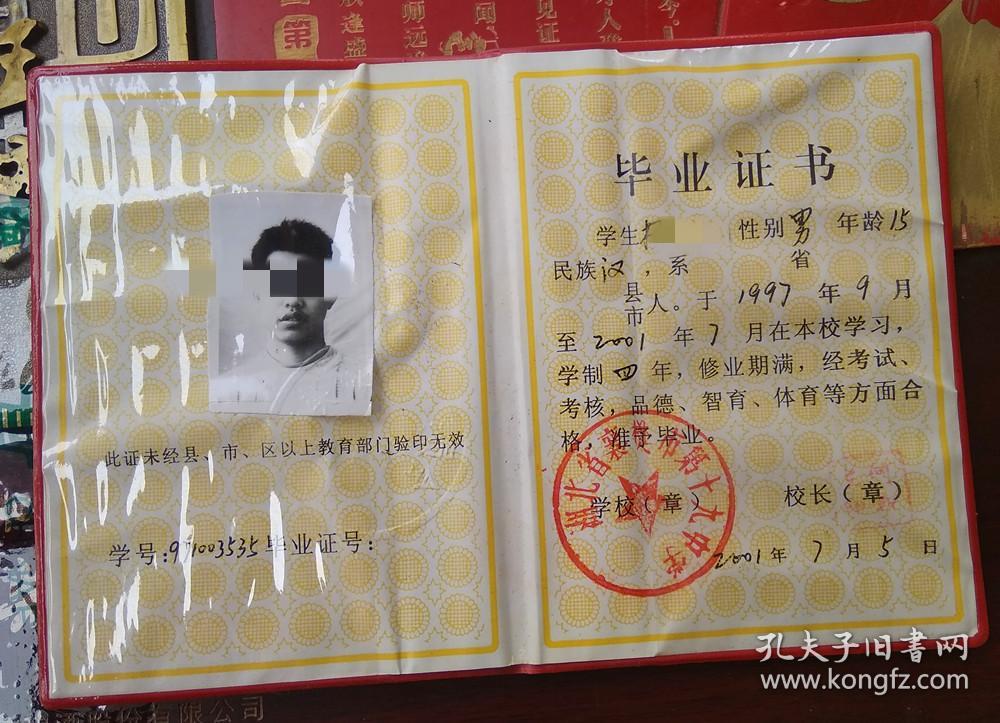 第
师
闻
见证
此证未经县、市、区以上教育部门验印无效
学号:971003535毕业证号:
毕业证书
学生 性别男 年龄15
民族汉，系 省
县
市人。于1997年9月
至2001年7月在本校学习，
学制四年，修业期满，经考试、
考核，品德、智育、体育等方面合
格，准予毕业。
学校（章） 校长（章）
湖北省襄樊市第十九中学
2001年7月5日
有限公司
孔夫子旧书网
www.kongfz.com